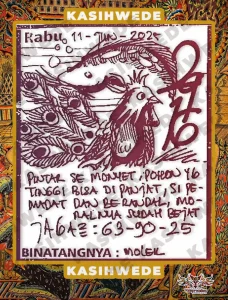 KASIHWEDE
Rabu, 11-Jun-2025
PINTAR SE MONYET, POHON YG
TINGGI BISA DI PANJAT, SI PE-
MADAT DAN BERANDAL, MO-
RALNYA SUDAH BEJAT
63-90-25
BINATANGNYA : MOLEK
KASIHWEDE